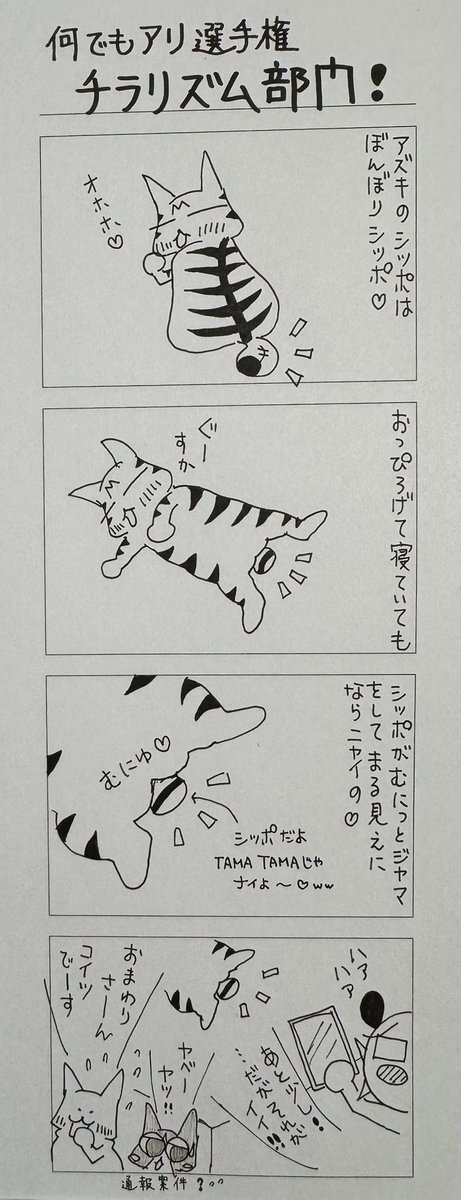 何でもアリ選手権
チラリズム部門!
アズキのシッポは
ぼんぼりシッポ♡
オホホ♡
おっぴろげて寝ていても
ぐー
すか
シッポがむにっとジャマ
をしてまる見えに
ならニャイの♡
むにゅ♡
シッポだよ
TAMA TAMAじゃ
ナイよ〜♡ww
ハァ
ハァ
あと少し!!
…だがそれが
イイ
ヤベー
ヤツ!!
おまわり
さーん
コイツ
でーす
通報案件?